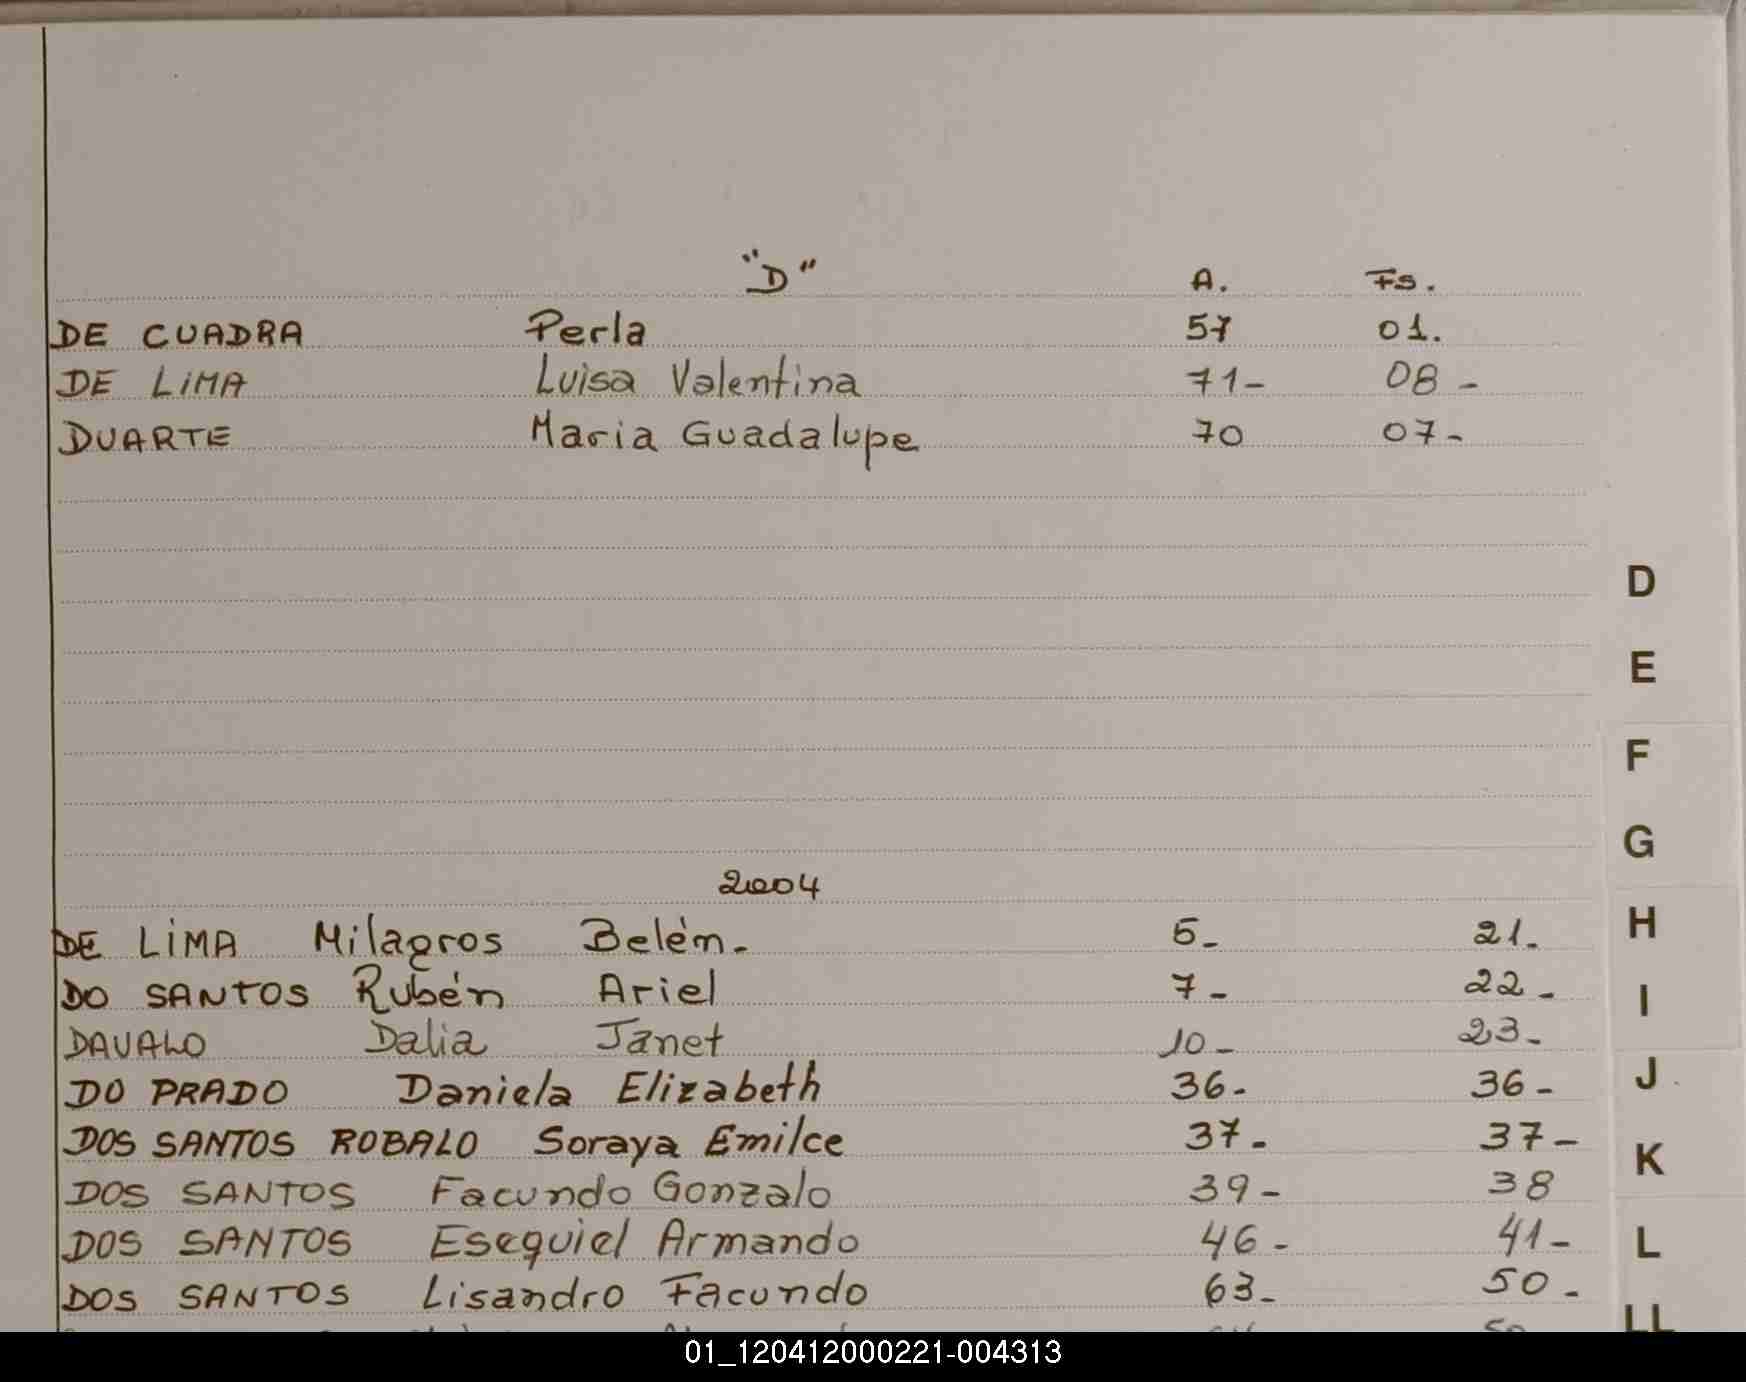 "D" A. Fs.
DE CUADRA Perla 57 01.
DE LiMA Luisa Valentina 71- 08-
DUARTE Maria Guadalupe 70 07-
D
E
F
G
2004
DE LiMA Milagros Belén. 5- 21.
H
DO SANTOS Rubén Ariel 7- 22-
I
DAVALO Dalia Janet 10- 23-
DO PRADO Daniela Elizabeth 36- 36-
J
DOS SANTOS ROBALO Soraya Emilce 37- 37-
K
DOS SANTOS Facundo Gonzalo 39- 38
DOS SANTOS Esequiel Armando 46- 41-
L
DOS SANTOS Lisandro Facundo 63- 50-
LL
01_120412000221-004313